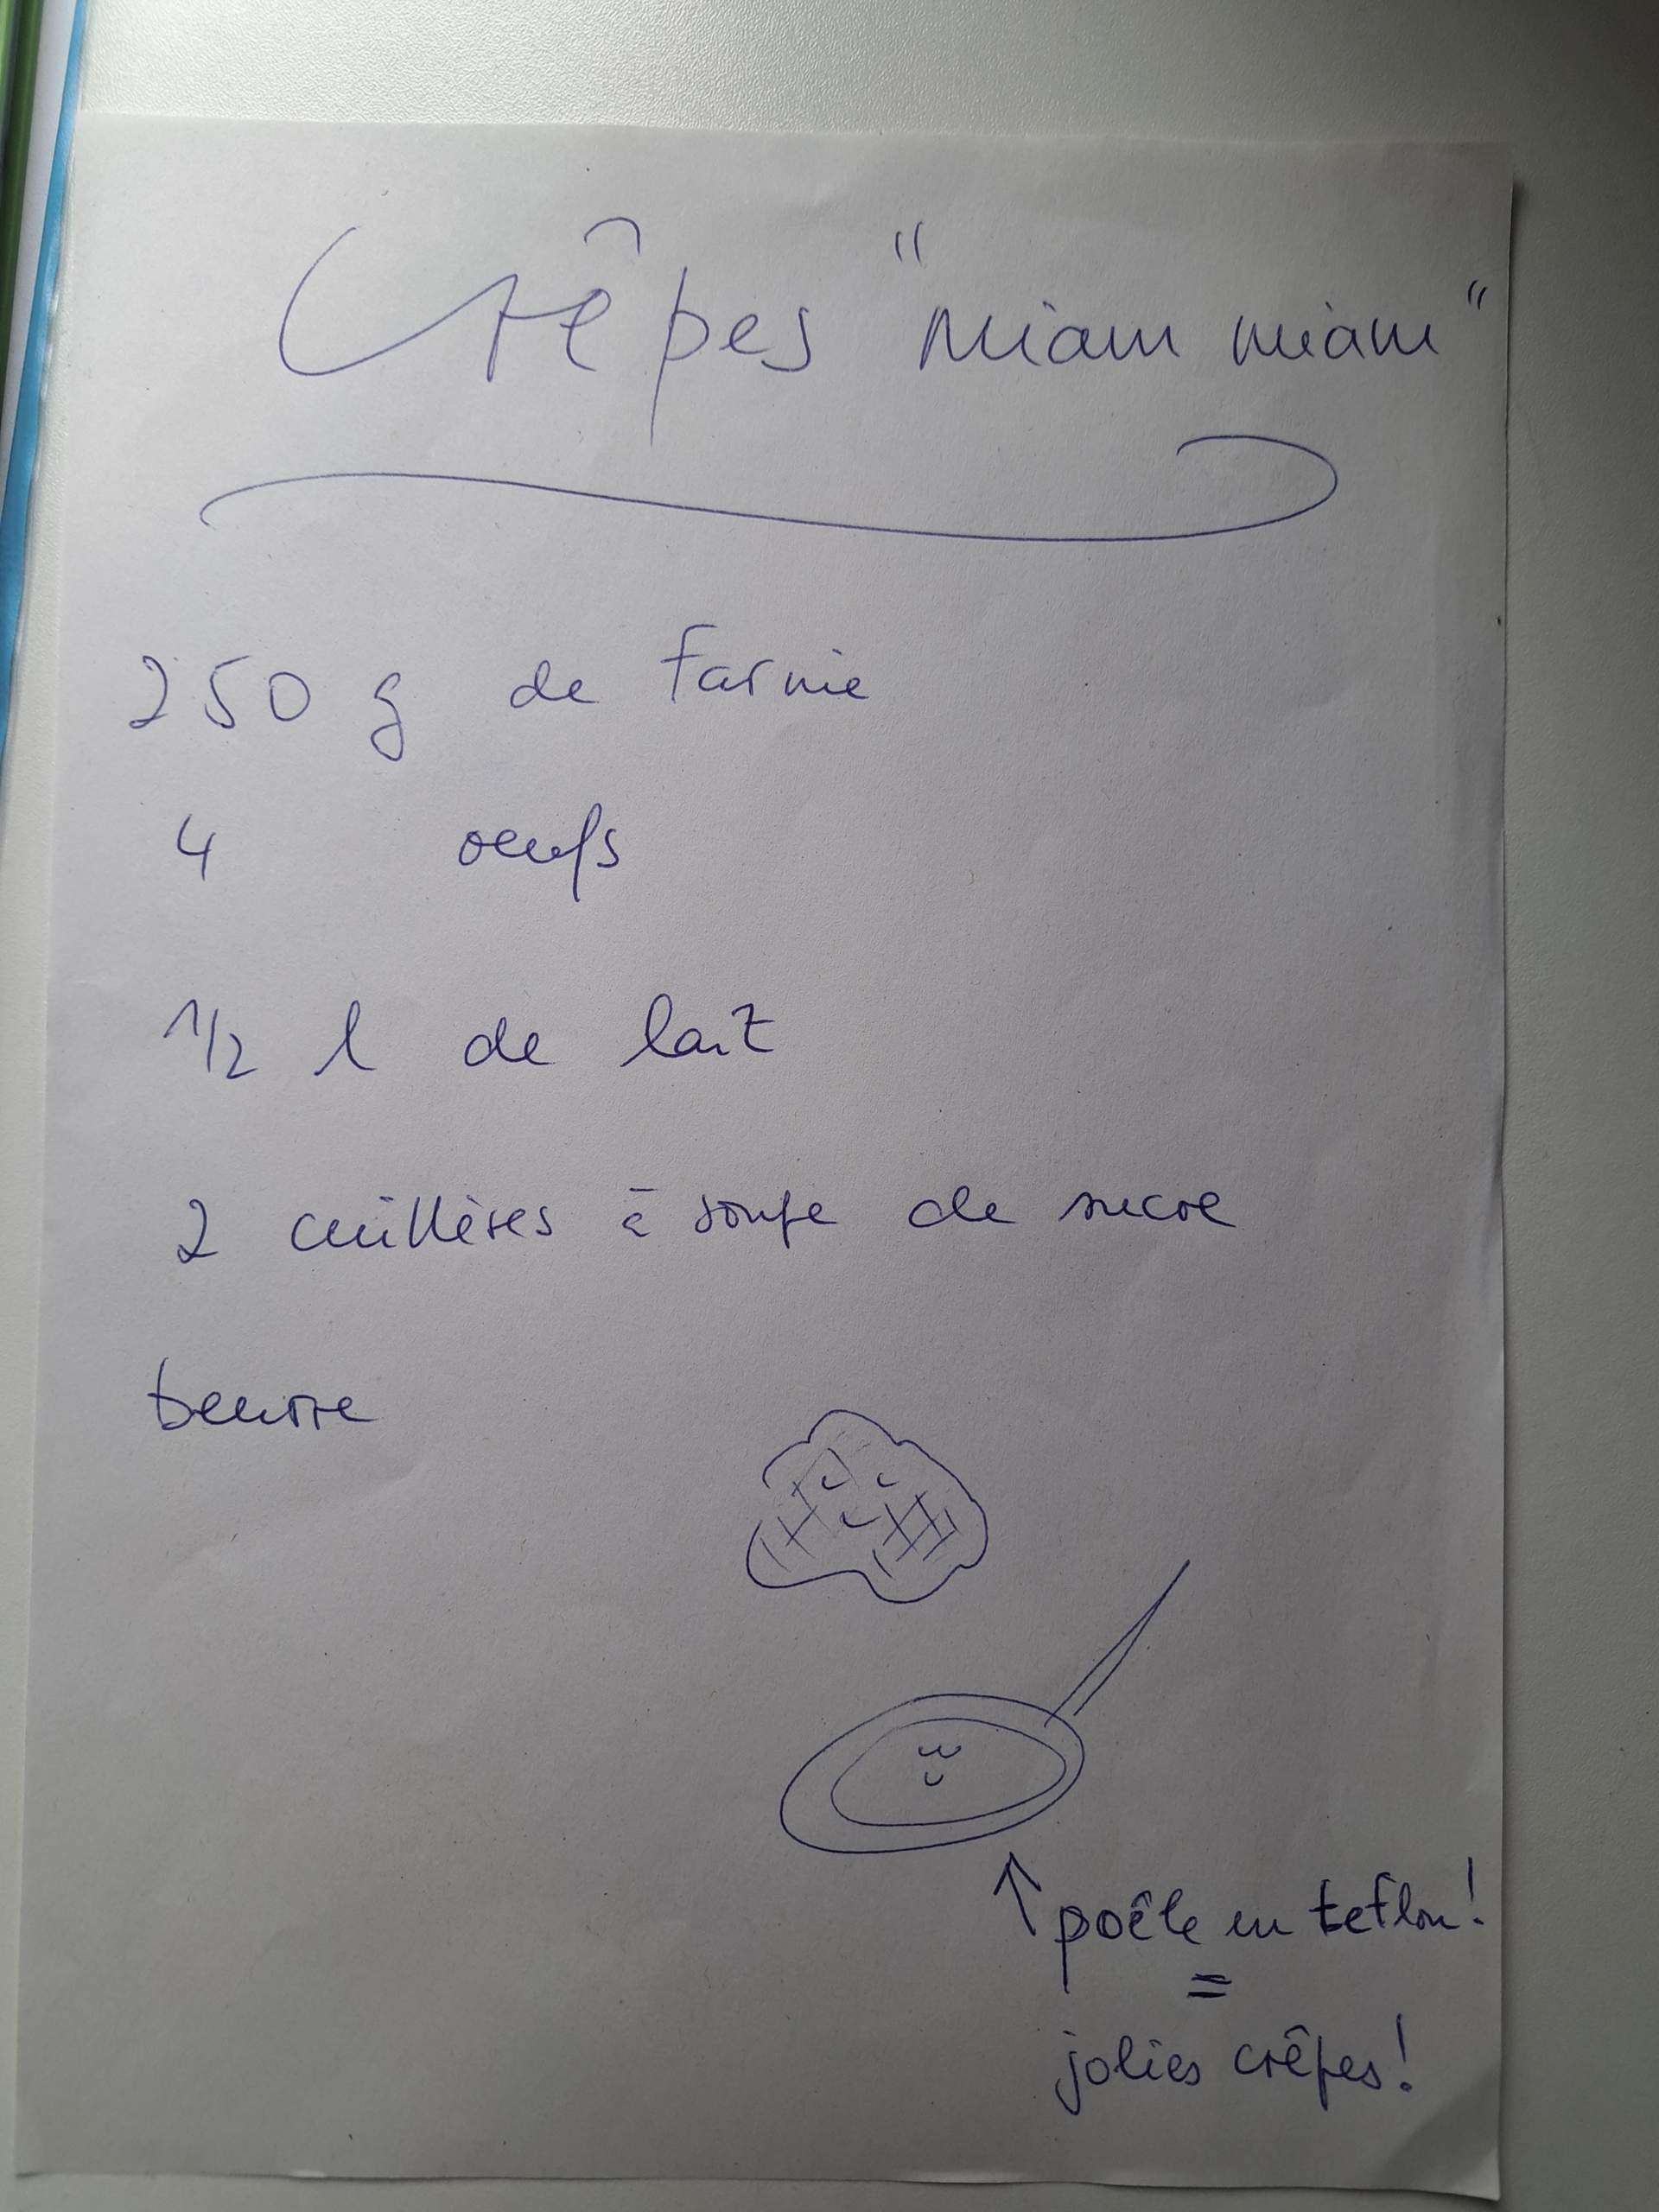 Crêpes "miam miam"
250 g de farine
4 oeufs
1/2 l de lait
2 cuillères à soupe de sucre
beurre
↑ poêle en teflon!
=
jolies crêpes!